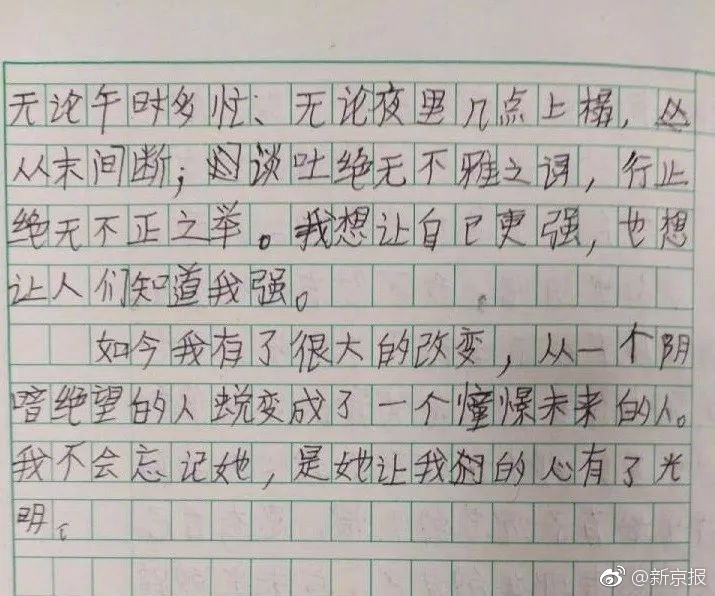 无论午时多忙、无论夜里几点上榻，
从未间断；谈吐绝无不雅之词，行止
绝无不正之举。我想让自己更强，也想
让人们知道我强。
如今我有了很大的改变，从一个阴
暗绝望的人蜕变成了一个憧憬未来的人。
我不会忘记她，是她让我的心有了光
明。
@新京报